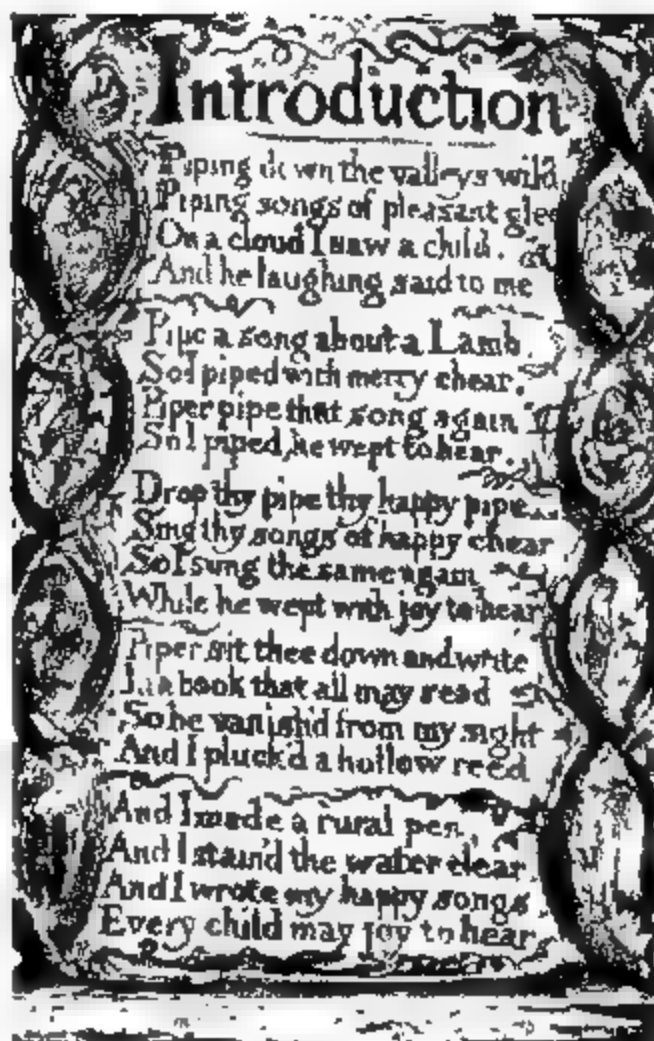 Introduction
Piping down the valleys wild
Piping songs of pleasant glee
On a cloud I saw a child.
And he laughing said to me
Pipe a song about a Lamb.
So I piped with merry chear.
Piper pipe that song again
So I piped, he wept to hear.
Drop thy pipe thy happy pipe
Sing thy songs of happy chear
So I sung the same again
While he wept with joy to hear
Piper sit thee down and write
In a book that all may read
So he vanish'd from my sight
And I pluck'd a hollow reed
And I made a rural pen,
And I stain'd the water clear,
And I wrote my happy songs
Every child may joy to hear